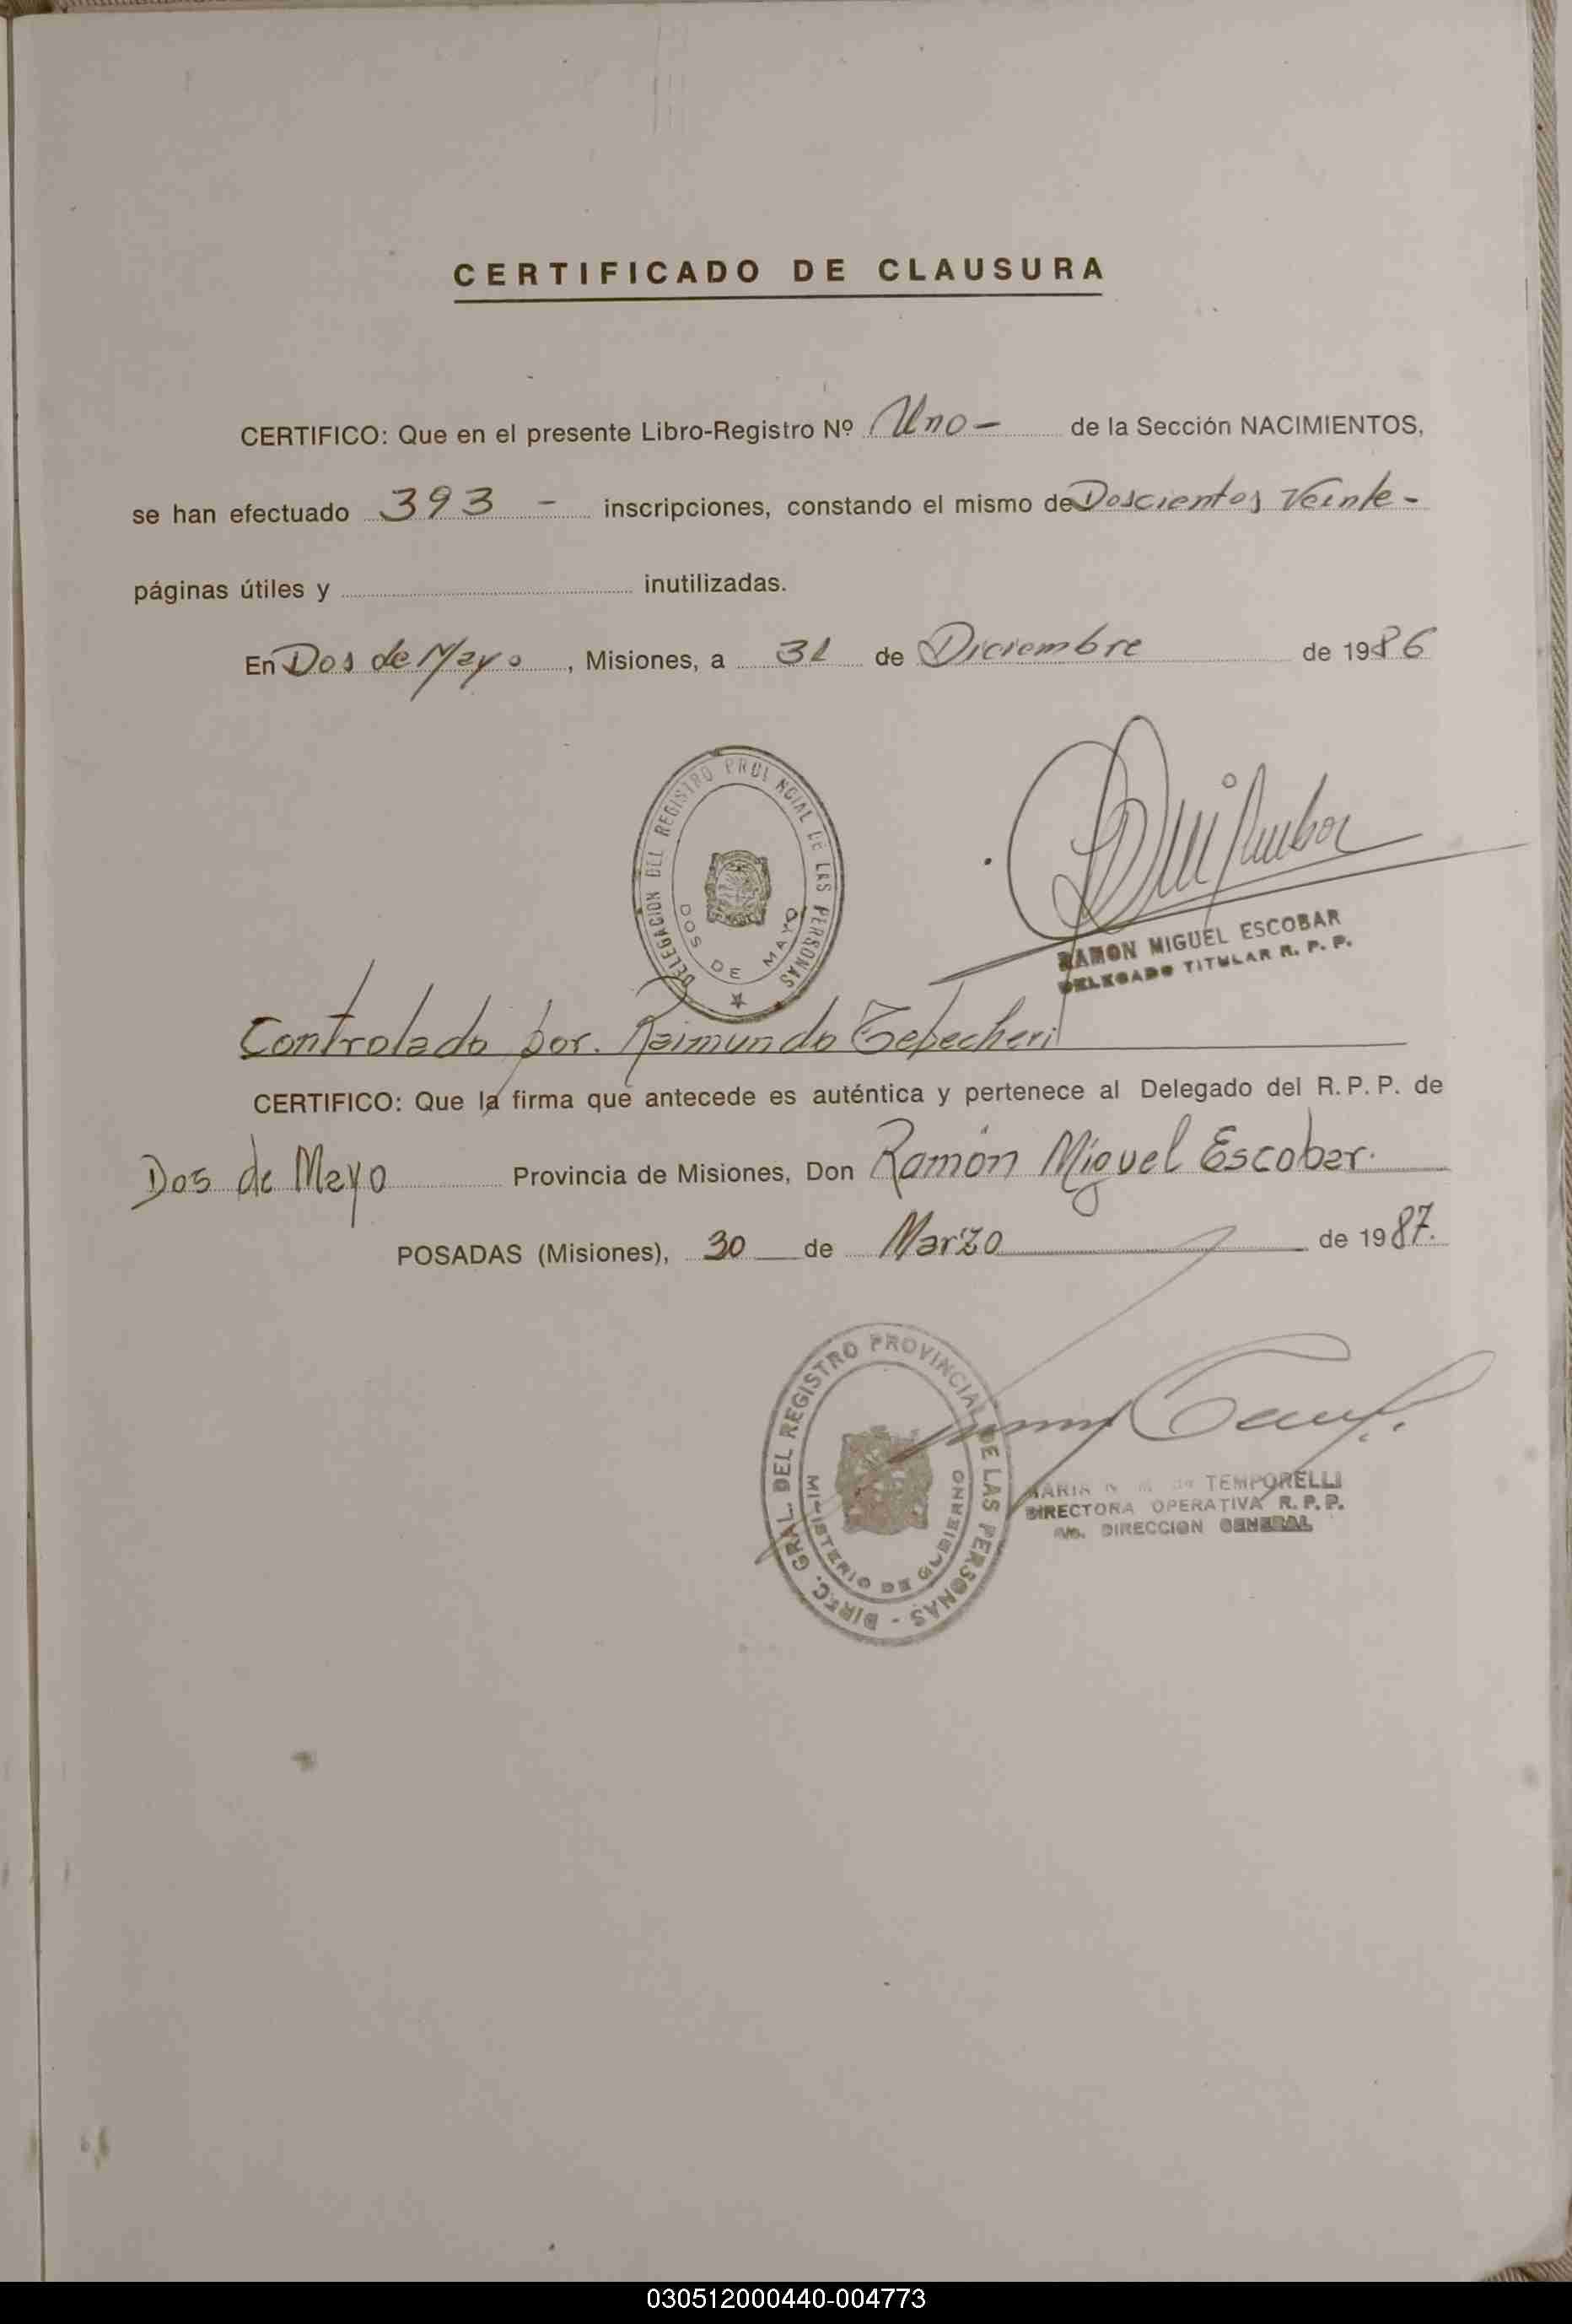 CERTIFICADO DE CLAUSURA
CERTIFICO: Que en el presente Libro-Registro Nº Uno - de la Sección NACIMIENTOS,
se han efectuado 393 - inscripciones, constando el mismo de Doscientos Veinte -
páginas útiles y inutilizadas.
En Dos de Mayo, Misiones, a 31 de Diciembre de 1986
DELEGACION DEL REGISTRO PROVINCIAL DE LAS PERSONAS
DOS DE MAYO
RAMON MIGUEL ESCOBAR
DELEGADO TITULAR R. P. P.
Controlado por. Raimundo
CERTIFICO: Que la firma que antecede es auténtica y pertenece al Delegado del R. P. P. de
Dos de Mayo Provincia de Misiones, Don Ramón Miguel Escobar.
POSADAS (Misiones), 30 de Marzo de 1987.
DIREC. GRAL. DEL REGISTRO PROVINCIAL DE LAS PERSONAS -
MINISTERIO DE GOBIERNO
MARIA TEMPORELLI
DIRECTORA OPERATIVA R. P. P.
DIRECCION GENERAL
030512000440-004773